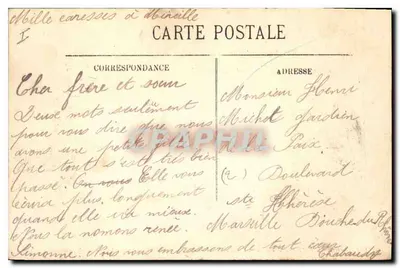 Mille caresses à Mireille
I
CARTE POSTALE
CORRESPONDANCE
ADRESSE
Cher frère et sœur
Deux mots seulement
pour vous dire que nous
avons une petite
Que tout s'est très bien
passé. Elle vous
écrira plus longuement
quand elle ira mieux.
Nous la nomons renée
Simonne. Nous vous embrassons de tout cœur
Monsieur Henri
Michel gardien
Paix
(2) Boulevard
ste Thérèse
Marseille Bouche du Rhone